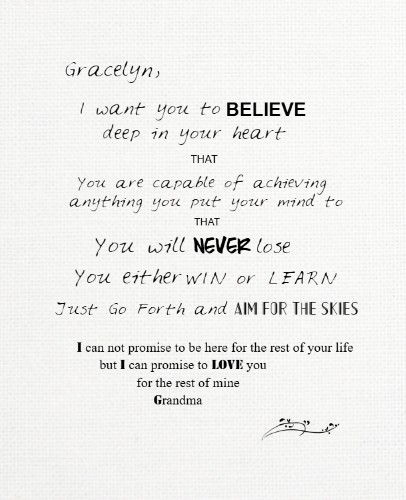 Gracelyn,
I want you to BELIEVE
deep in your heart
THAT
You are capable of achieving
anything you put your mind to
THAT
You will NEVER lose
You either WIN or LEARN
Just Go Forth and AIM FOR THE SKIES
I can not promise to be here for the rest of your life
but I can promise to LOVE you
for the rest of mine
Grandma